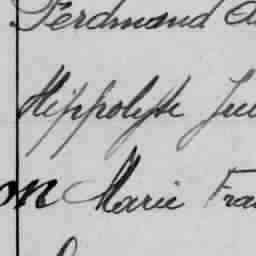 Ferdinand
Hippolyte
on Marie Fran